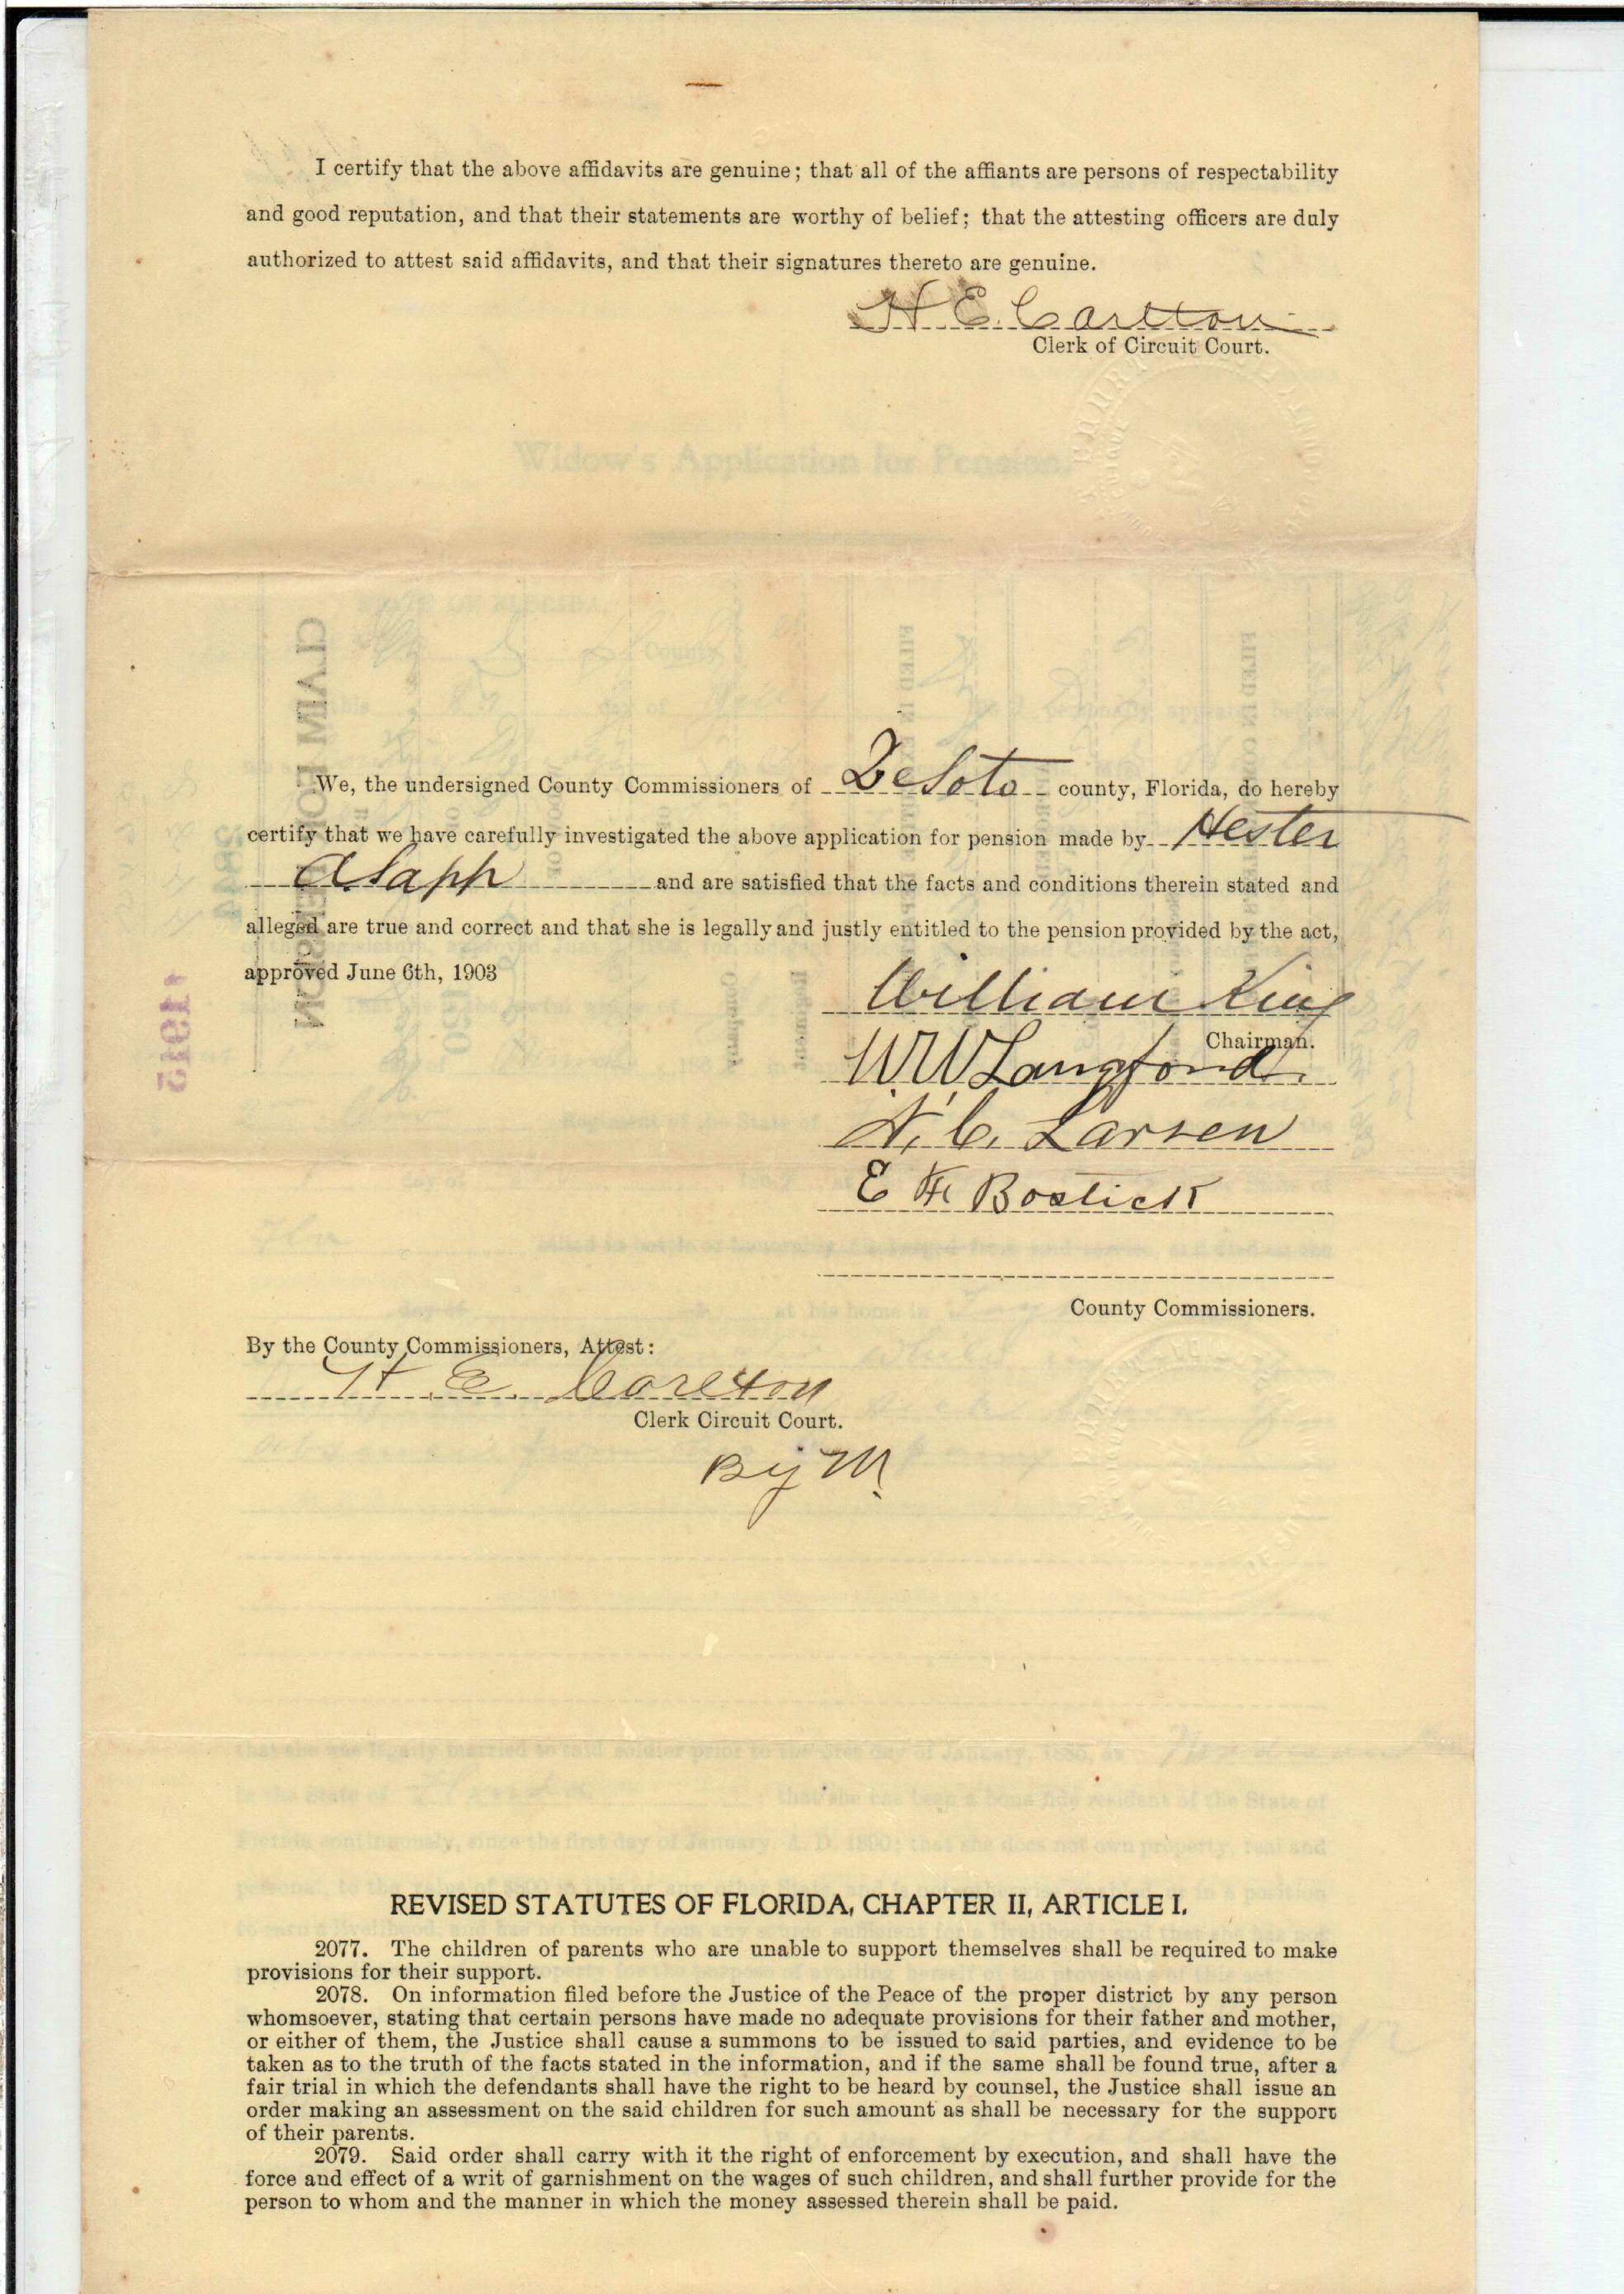 I certify that the above affidavits are genuine; that all of the affiants are persons of respectability
and good reputation, and that their statements are worthy of belief; that the attesting officers are duly
authorized to attest said affidavits, and that their signatures thereto are genuine.
H E. Carlton
Clerk of Circuit Court.
Widow's Application for Pension.
We, the undersigned County Commissioners of DeSoto county, Florida, do hereby
certify that we have carefully investigated the above application for pension made by Hester
Alapp and are satisfied that the facts and conditions therein stated and
alleged are true and correct and that she is legally and justly entitled to the pension provided by the act,
approved June 6th, 1903
William King
Chairman.
W W Langford
N. C. Larsen
E F Bostick
County Commissioners.
By the County Commissioners, Attest:
H. E. Carlton
Clerk Circuit Court.
By M
REVISED STATUTES OF FLORIDA, CHAPTER II, ARTICLE I.
2077. The children of parents who are unable to support themselves shall be required to make
provisions for their support.
2078. On information filed before the Justice of the Peace of the proper district by any person
whomsoever, stating that certain persons have made no adequate provisions for their father and mother,
or either of them, the Justice shall cause a summons to be issued to said parties, and evidence to be
taken as to the truth of the facts stated in the information, and if the same shall be found true, after a
fair trial in which the defendants shall have the right to be heard by counsel, the Justice shall issue an
order making an assessment on the said children for such amount as shall be necessary for the support
of their parents.
2079. Said order shall carry with it the right of enforcement by execution, and shall have the
force and effect of a writ of garnishment on the wages of such children, and shall further provide for the
person to whom and the manner in which the money assessed therein shall be paid.